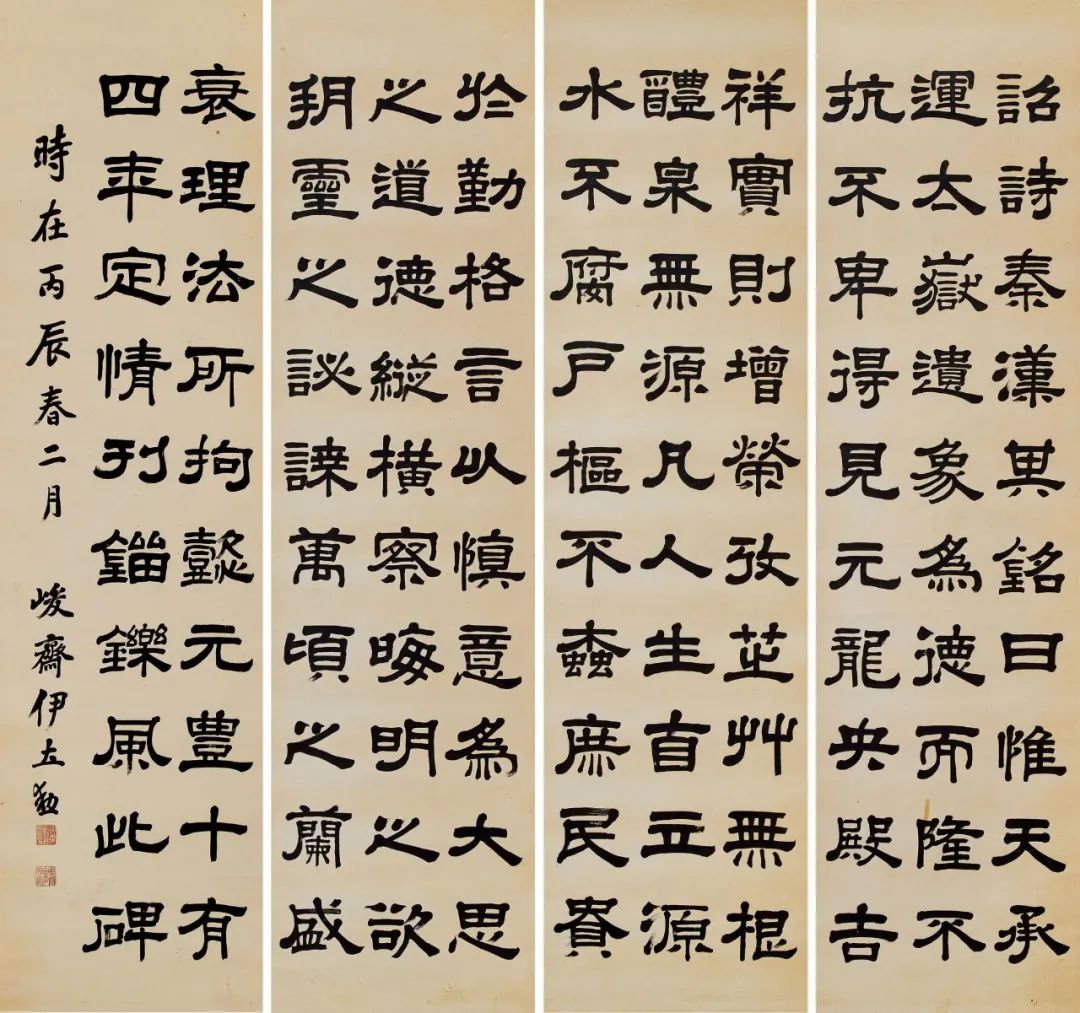 詔詩秦漢異銘曰惟天承
運太嶽遺象為德而隆不
抗不卑得見元龍央殿吉
祥實則增榮攷芝艸無根
醴泉無源凡人生自立源
水不腐戶樞不蠹庶民貴
於勤格言以慎意為大思
之道德縱橫察晦明之欲
靈之謀萬頃之蘭盛
衰理法所拘懿元豊十有
四年定情刊錙鑠風此碑
時在丙辰春二月 峻齋伊立勲